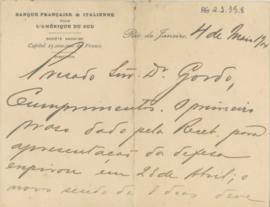 BANQUE FRANÇAISE & ITALIENNE
POUR
L'AMÉRIQUE DU SUD
SOCIÉTÉ ANONYME
Capital 25.000.000 Francs
AG 2.3.95.8
Rio de Janeiro, 4 de Maio
Prezado Snr. Dr. Gordo,
Cumprimentos. O primeiro
prazo dado pela Receb. para
apresentação da defesa
expirou em 28 de Abril; o
novo sendo de 8 dias deve